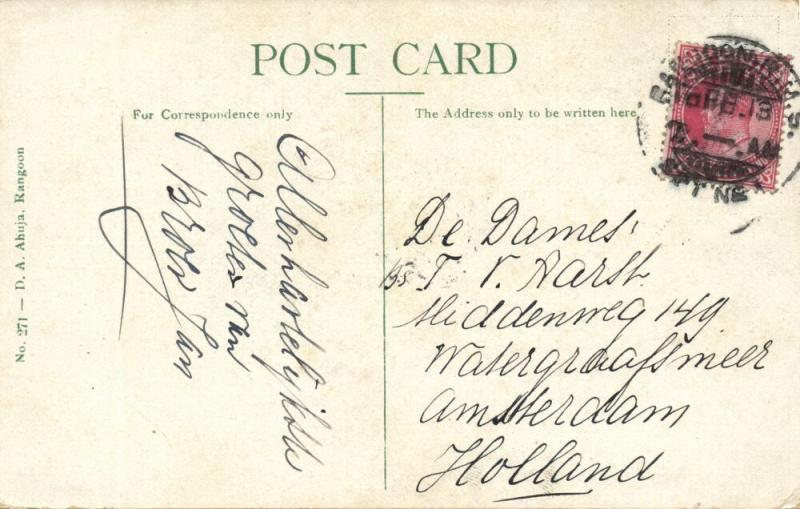 POST CARD
For Correspondence only
The Address only to be written here
No. 271 — D. A. Ahuja, Rangoon
Allerhartelijkste
groeten van
Broer Jan
De Dames
T. V. Aarst
Middenweg 149
Watergraafsmeer
Amsterdam
Holland